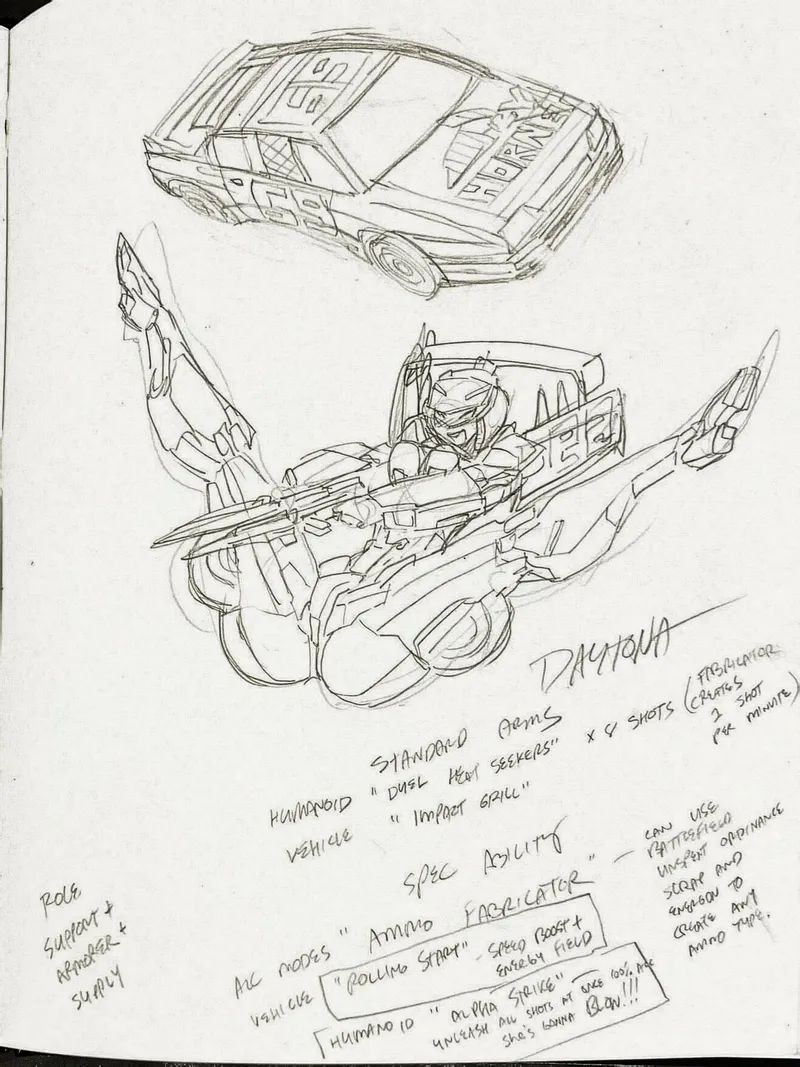 HORNET
69
DAYTONA
STANDARD ARMS
HUMANOID "DUEL HEAT SEEKERS" x 8 SHOTS
(FABRICATOR
CREATES
1 SHOT
PER MINUTE)
VEHICLE "IMPACT GRILL"
SPEC ABILITY
ALL MODES "AMMO FABRICATOR" —
CAN USE
BATTLEFIELD
UNSPENT ORDINANCE
SCRAP AND
ENERGON TO
CREATE ANY
AMMO TYPE.
VEHICLE "ROLLING START" - SPEED BOOST +
ENERGY FIELD
HUMANOID "ALPHA STRIKE"
UNLEASH ALL SHOTS AT ONCE 100%
SHE'S GONNA BLOW!!!
ROLE
SUPPORT +
ARMORER +
SUPPLY